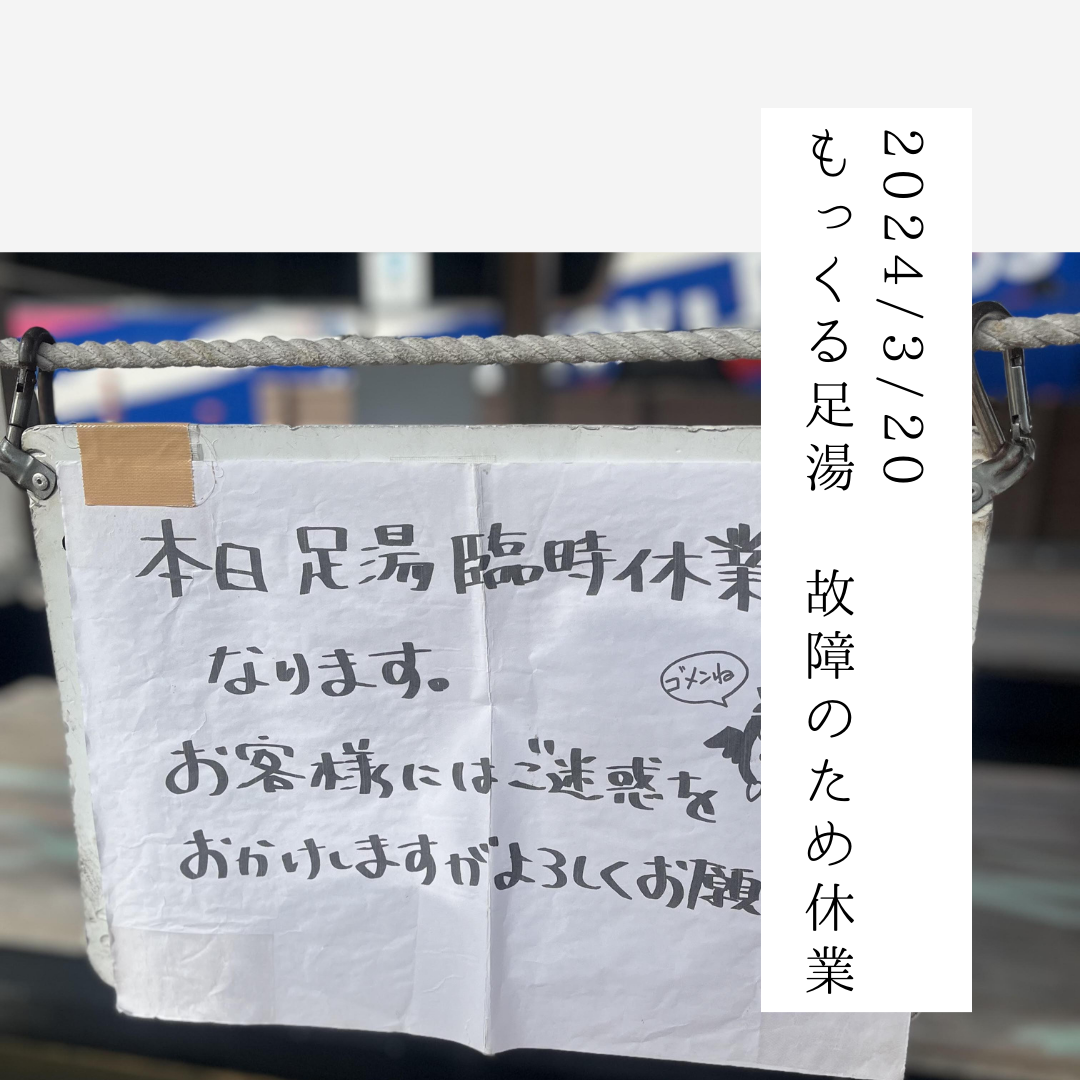 2024/3/20
もっくる足湯　故障のため休業
本日 足湯 臨時休業
なります。
ゴメンね
お客様にはご迷惑を
おかけしますがよろしくお願